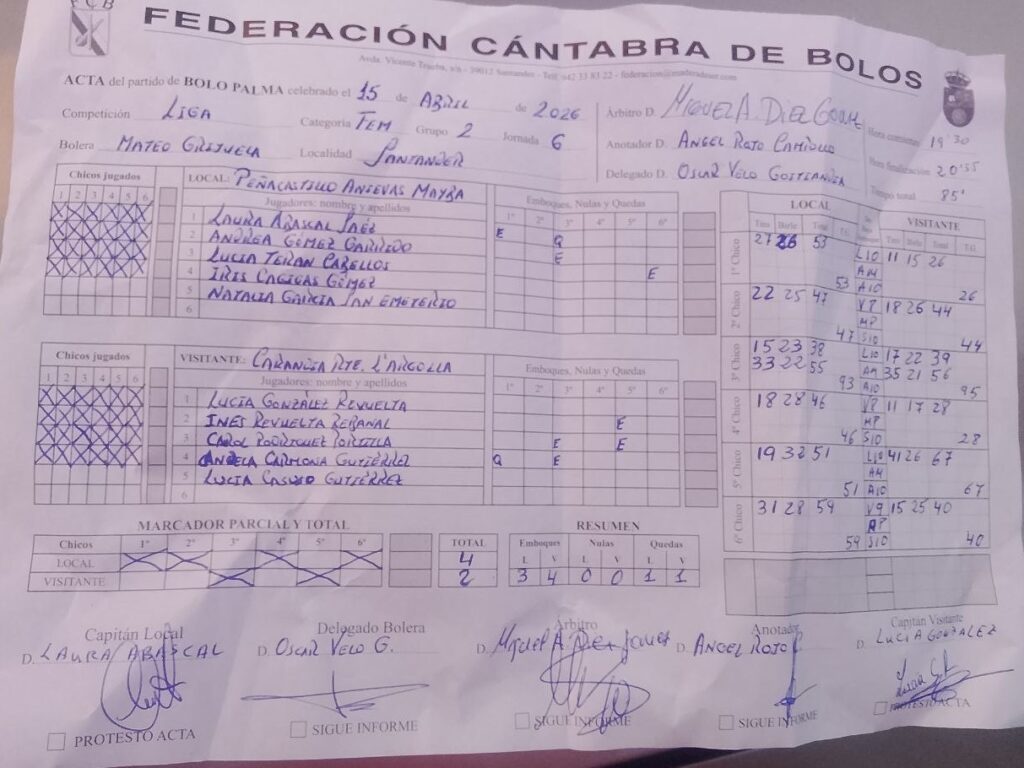 FCB
FEDERACIÓN CÁNTABRA DE BOLOS
Avda. Vicente Trueba, s/n - 39012 Santander - Telf. 942 33 83 22 -
ACTA del partido de BOLO PALMA celebrado el 15 de ABRIL de 2026
Competición LIGA Categoría FEM Grupo 2 Jornada 6
Bolera MATEO GRIJUELA Localidad SANTANDER
Árbitro D. MIGUEL A. DIEZ
Anotador D. ANGEL ROJO
Delegado D. OSCAR VELO
Hora comienzo 19'30
Hora finalización 20'55
Tiempo total 85'
Chicos jugados
1 2 3 4 5 6
LOCAL: PEÑACASTILLO ANIEVAS MAYBA
Jugadores: nombre y apellidos
Emboques, Nulas y Quedas
1º 2º 3º 4º 5º 6º
1 LAURA ABASCAL SAEZ E
2 ANDREA GÓMEZ GARRIDO Q
3 LUCIA TERAN CABELLOS E
4 IRIS CAGIGAS GÓMEZ E
5 NATALIA GARCIA SAN EMETERIO
6
Chicos jugados
1 2 3 4 5 6
VISITANTE: CARANCEJA RTE. L'ARGOLLA
Jugadores: nombre y apellidos
Emboques, Nulas y Quedas
1º 2º 3º 4º 5º 6º
1 LUCIA GONZÁLEZ REVUELTA
2 INES REVUELTA REBANAL E
3 CAROL RODRIGUEZ E E
4 ANGELA CARMONA GUTIÉRREZ Q E
5 LUCIA CASUSO GUTIÉRREZ
6
LOCAL VISITANTE
Tiro Birle Total T.G. Tiro Birle Total T.G.
1º Chico 27 26 53 L10 11 15 26
AM
53 A10 26
2º Chico 22 25 47 VP 18 26 44
MP
47 S10 44
3º Chico 15 23 38 L10 17 22 39
33 22 55 AM 35 21 56
93 A10 95
4º Chico 18 28 46 VP 11 17 28
MP
46 S10 28
5º Chico 19 32 51 L10 41 26 67
AM
51 A10 67
6º Chico 31 28 59 15 25 40
59 S10 40
MARCADOR PARCIAL Y TOTAL
Chicos 1º 2º 3º 4º 5º 6º TOTAL
LOCAL 4
VISITANTE 2
RESUMEN
Emboques Nulas Quedas
L V L V L V
3 4 0 0 1 1
Capitán Local
D. LAURA ABASCAL
PROTESTO ACTA
Delegado Bolera
D. OSCAR VELO G.
SIGUE INFORME
Árbitro
D. MIGUEL A.
SIGUE INFORME
Anotador
D. ANGEL ROJO
SIGUE INFORME
Capitán Visitante
D. LUCIA GONZALEZ
PROTESTO ACTA